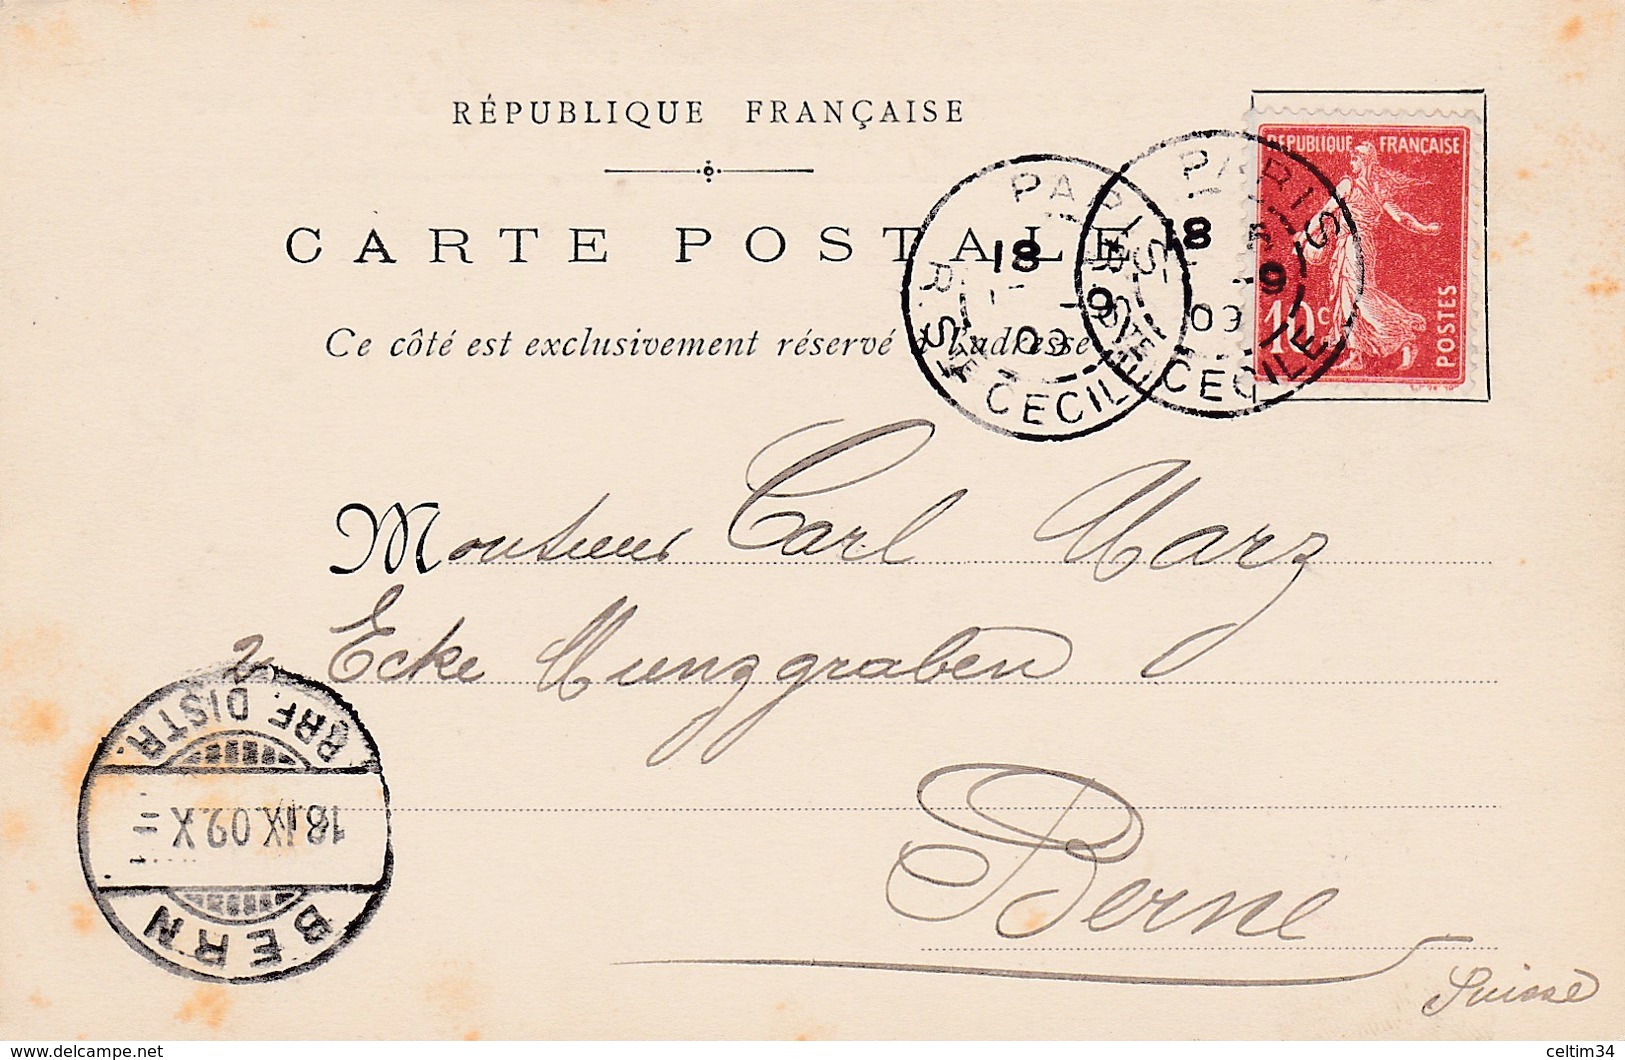 RÉPUBLIQUE FRANÇAISE
CARTE POSTALE
Ce côté est exclusivement réservé à l'adresse
REPUBLIQUE FRANÇAISE
10c
POSTES
PARIS
18 -9
09
R. STE CECILE
PARIS
18 -9
09
R. STE CECILE
Monsieur Carl Marz
2 Ecke Munzgraben
Berne
Suisse
BERN
18.IX.09.X
BRF. DISTR.
www.delcampe.net
celtim34